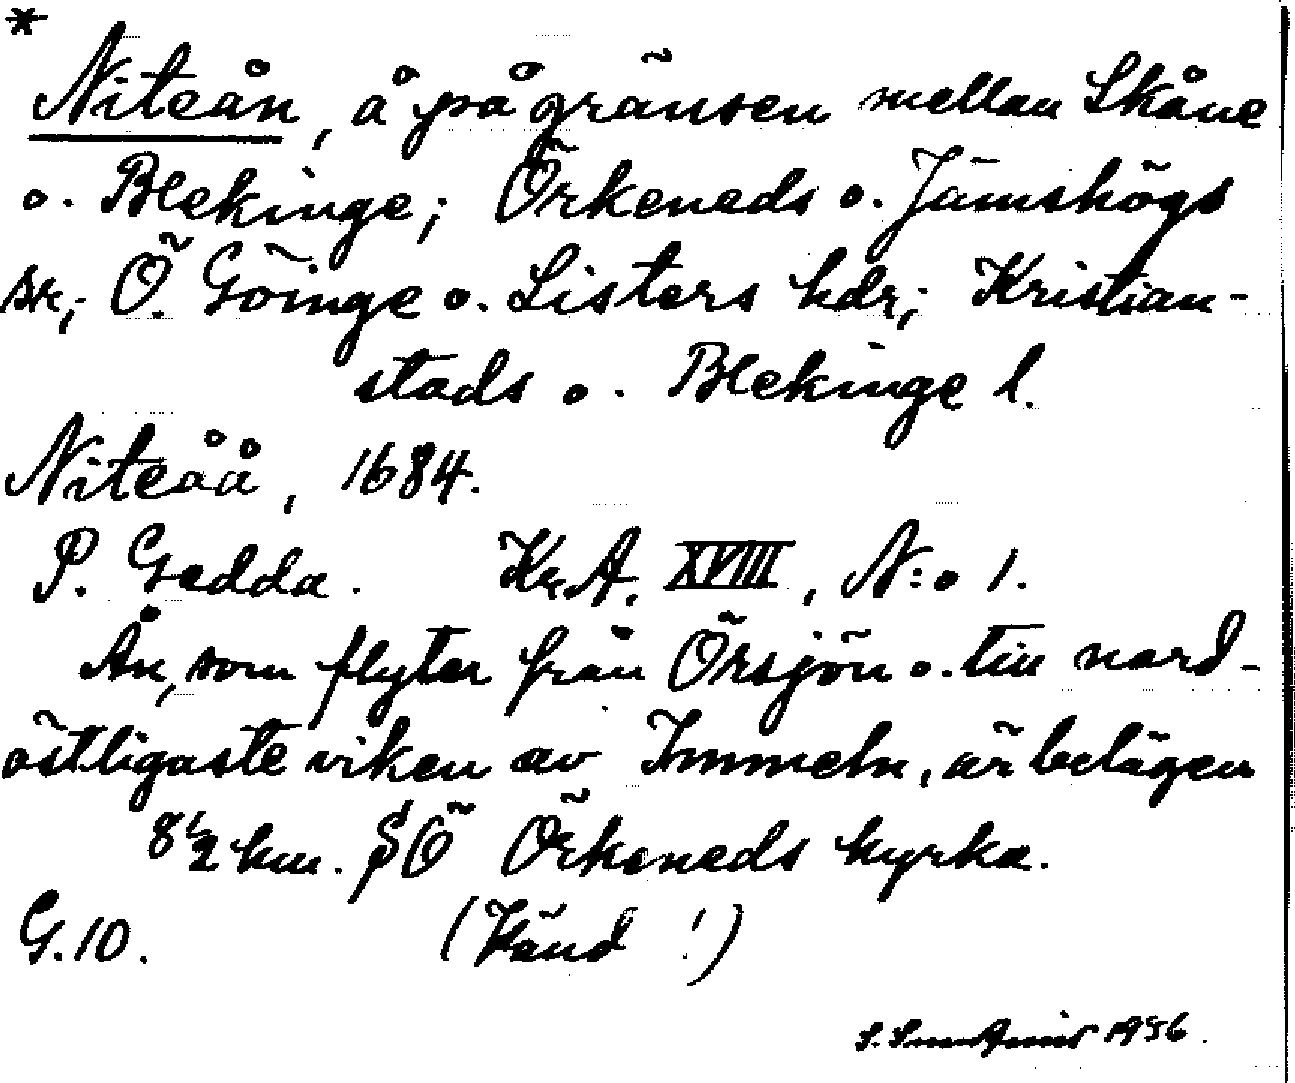 *
Niteån, å på gränsen mellan Skåne
o. Blekinge; Örkeneds o. Jämshögs
sk; Ö. Göinge o. Listers hdr; Kristian-
stads o. Blekinge l.
Niteåå, 1684.
P. Gedda. Kr.A. XVIII, N:o 1.
Ån, som flyter från Örsjön o. till nord-
östligaste viken av Immeln, är belägen
8 1/2 km. SÖ Örkeneds kyrka.
G.10. (Känd !)
S. 1956.